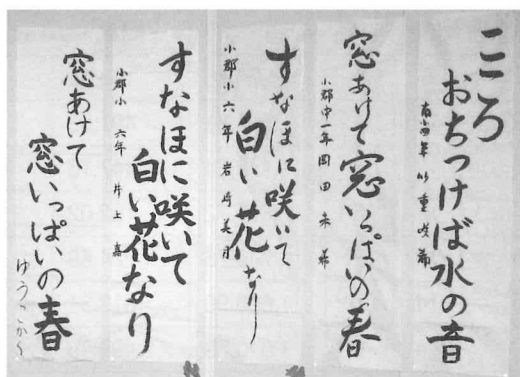 こころ
おちつけば水の音
窓あけて窓いっぱいの春
小郡中一年岡田未希
すなほに咲いて
白い花なり
小郡小六年岩崎美月
すなほに咲いて
白い花なり
小郡小六年片上嘉
窓あけて
窓いっぱいの春